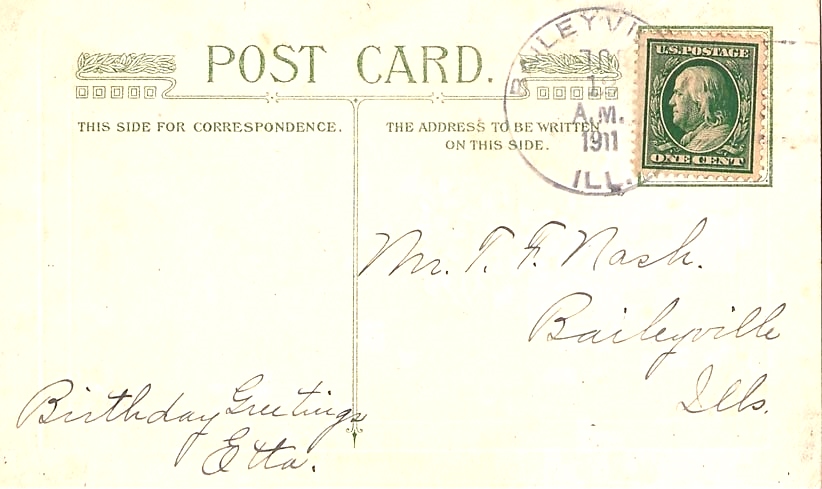 POST CARD.
THIS SIDE FOR CORRESPONDENCE.
THE ADDRESS TO BE WRITTEN
ON THIS SIDE.
A.M.
1911
ILL.
U.S. POSTAGE
ONE CENT
Mr. T. F. Nash.
Baileyville
Ills.
Birthday Greetings
Etta.